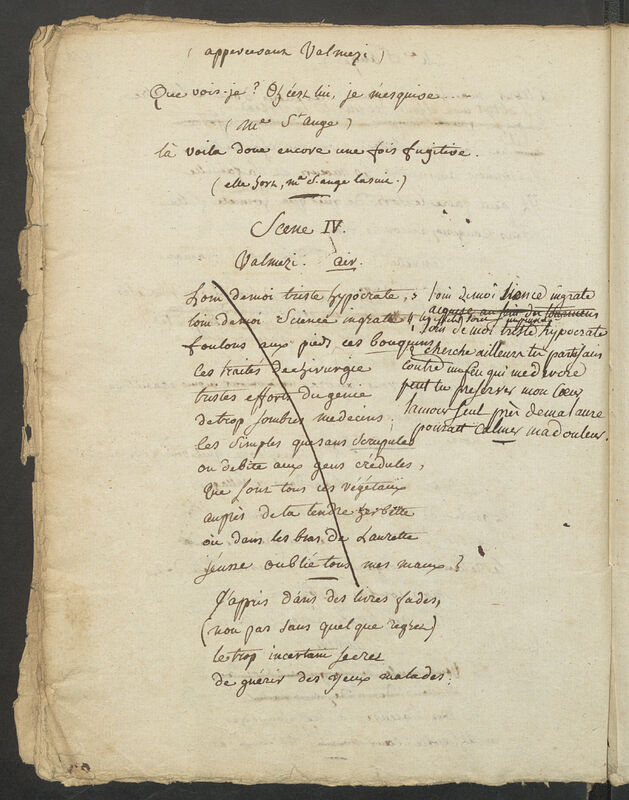 ( appercevant Valmezi )
Que vois-je? c'est lui, je m'esquive
( Me St Ange )
la voila donc encore une fois fugitive.
( elle sort, Me St ange la suit. )
Scene IV.
Valmezi. air.
Loin de moi triste hypocrate,
loin de moi Science ingrate
foulons aux pieds ces bouquins
les traites de chirurgie
tristes efforts du génie
de trop sombres medecins;
les simples que sans scrupules
on debite aux gens crédules,
Que sont tous ces végétaux
auprès de la tendre
où dans les bras de Laurette
j'eusse oublié tous mes maux?
J'appris dans des livres fades,
(non pas sans quelque regret)
le trop incertain secret
de guérir des yeux malades.
loin de moi sience ingrate
loin de moi triste hypocrate
cherche ailleurs tes partisans
contre un feu qui me devore
peut tu preserver mon Cœur
l'amour seul près de ma laure
pourait calmer ma douleur.